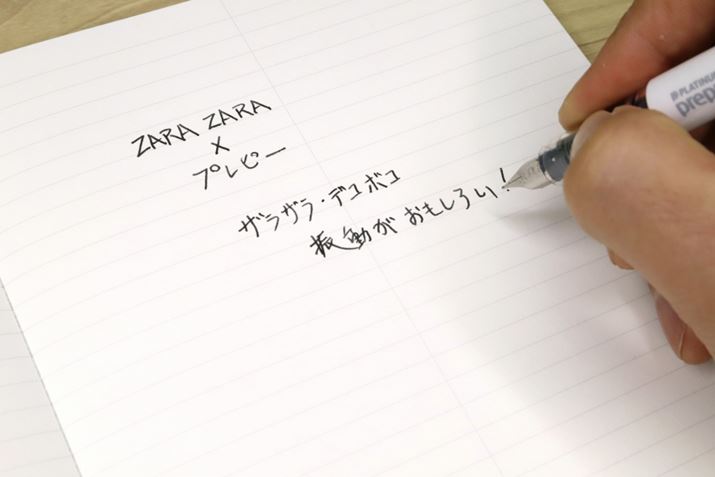 ZARA ZARA
×
プレピー
ザラザラ・デコボコ
振動がおもしろい!
PLATINUM
prep